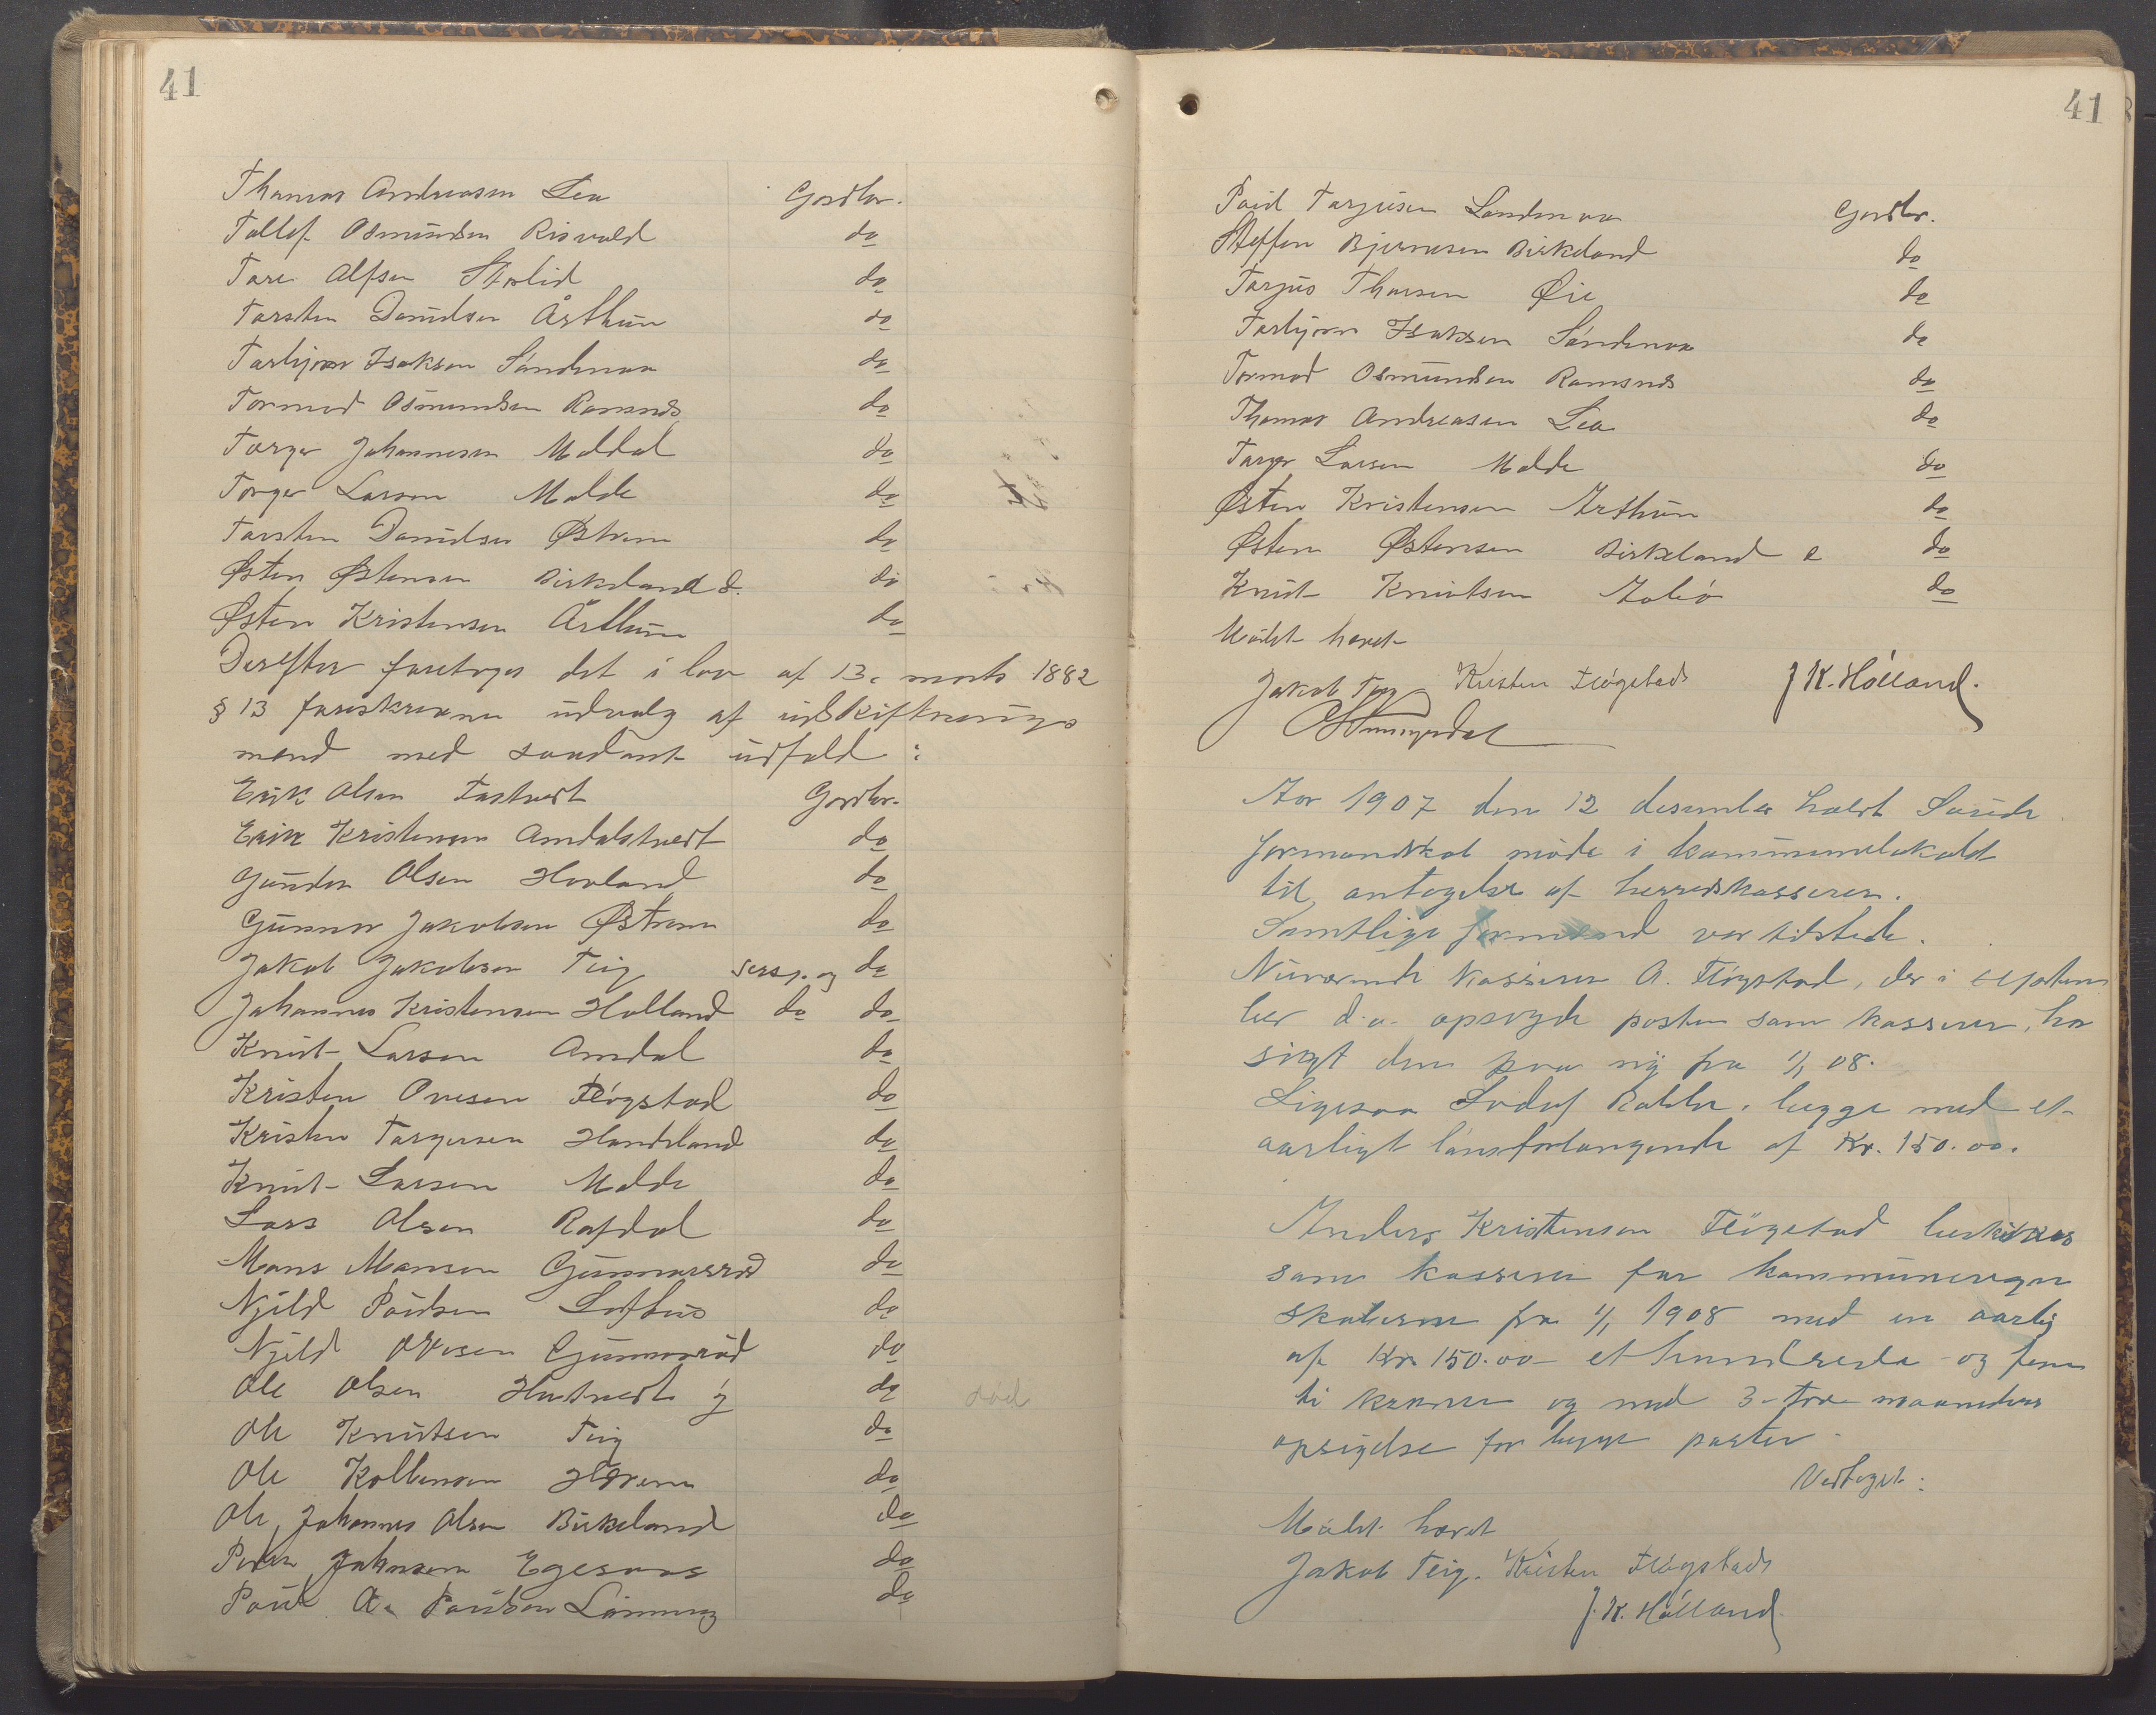 41
Thomas Andreasen Lea Gaardbr.
Tollef Osmundsen Risvold do
Tore Alfsen Storlid do
Torsten Danielsen Årthun do
Torbjørn Isaksen Søndenaa do
Tormod Osmundsen Ramsnes do
Torger Johannesen Moldal do
Torger Larsen Molde do
Torsten Danielsen Østrem do
Østen Østensen Birkeland d. do
Østen Kristensen Årthun do
Derefter foretoges det i lov af 13. marts 1882
§ 13 foreskrevne udvalg af udskiftnings
mænd med saadant udfald :
Erik Olsen Tastvedt Gaardbr.
Erik Kristensen Amdalstvedt do
Gunder Olsen Hovland do
Gunnar Jakobsen Østrem do
Jakob Jakobsen Teig sersj. og do
Johannes Kristensen Holland do do
Knut Larsen Amdal do
Kristen Ovesen Fløgstad do
Kristen Torgersen Handeland do
Knut Larsen Molde do
Lars Olsen Rafdal do
Mons Monsen Gunnarsrød do
Njeld Poulsen Lofthus do
Njeld Ovesen Gunnarsrød do
Ole Olsen Hustvedt y do død
Ole Knutsen Teig do
Ole Kolbensen Herem do
Ole Johannes Olsen Birkeland do
Peder Johnsen Egesaas do
Poul A. Poulsen Lönning do
41
Poul Torjusen Søndenaa Gaardbr.
Steffen Bjørnesen Birkeland do
Torjus Thorsen Øie do
Torbjørn Isaksen Søndenaa do
Tormod Osmundsen Ramsnes do
Thomas Andreasen Lea do
Torger Larsen Molde do
Østen Kristensen Arthun do
Østen Østensen Birkeland e do
Knut Knutsen Aabø do
Mødet hævet
Jakob Teig Kristen Fløgstad J K. Hólland.
Aar 1907 den 12 desember holdt Saude
formandskab møde i kommunelokalet
til antagelse af herredskasserer.
Samtlige formænd var tilstede.
Nuværende kasserer A. Fløgstad, der i septem
ber d.a. opsagde posten som kasserer, har
søgt den paa ny fra 1/1 08.
Ligesaa Lodof Rabbe, begge med et
aarligt lønsforlangende af Kr. 150.00.
Anders Kristensen Fløgstad beskikkes
som kasserer for kommuneregn
skaberne fra 1/1 1908 med en aarlig
af Kr. 150.00 et hundrede og fem
ti kroner og med 3-tre maaneders
opsigelse for begge parter.
Vedtaget:
Mødet hævet
Jakob Teig. Kristen Fløgstad
J. K. Hólland.